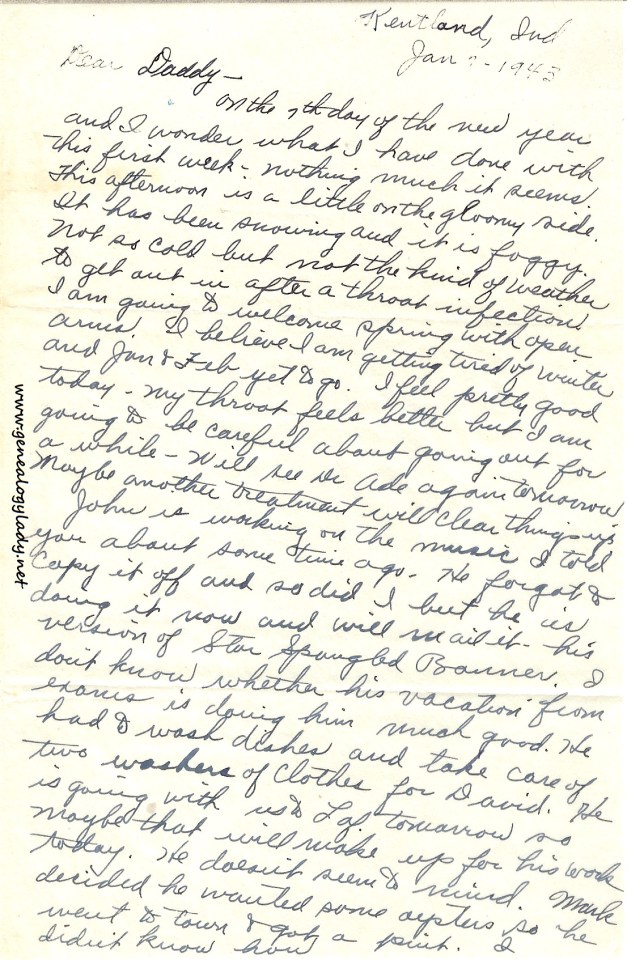 Kentland, Ind
Jan 7 - 1943
Dear Daddy -
On the 7th day of the new year
and I wonder what I have done with
this first week - nothing much it seems.
This afternoon is a little on the gloomy side.
It has been snowing and it is foggy.
Not so cold but not the kind of weather
to get out in after a throat infection.
I am going to welcome spring with open
arms. I believe I am getting tired of winter
and Jan & Feb yet to go. I feel pretty good
today - my throat feels better but I am
going to be careful about going out for
a while - Will see Dr Ade again tomorrow
Maybe another treatment will clear things up.
John is working on the music I told
you about some time ago. He forgot to
copy it off and so did I but he is
doing it now and will mail it - his
version of Star Spangled Banner. I
don't know whether his vacation from
exams is doing him much good. He
had to wash dishes and take care of
two washers of clothes for David. He
is going with us to Laf. tomorrow so
maybe that will make up for his work
today. He doesn't seem to mind. Mark
decided he wanted some oysters so he
went to town & got a pint. I
didn't know how
www.genealogylady.net